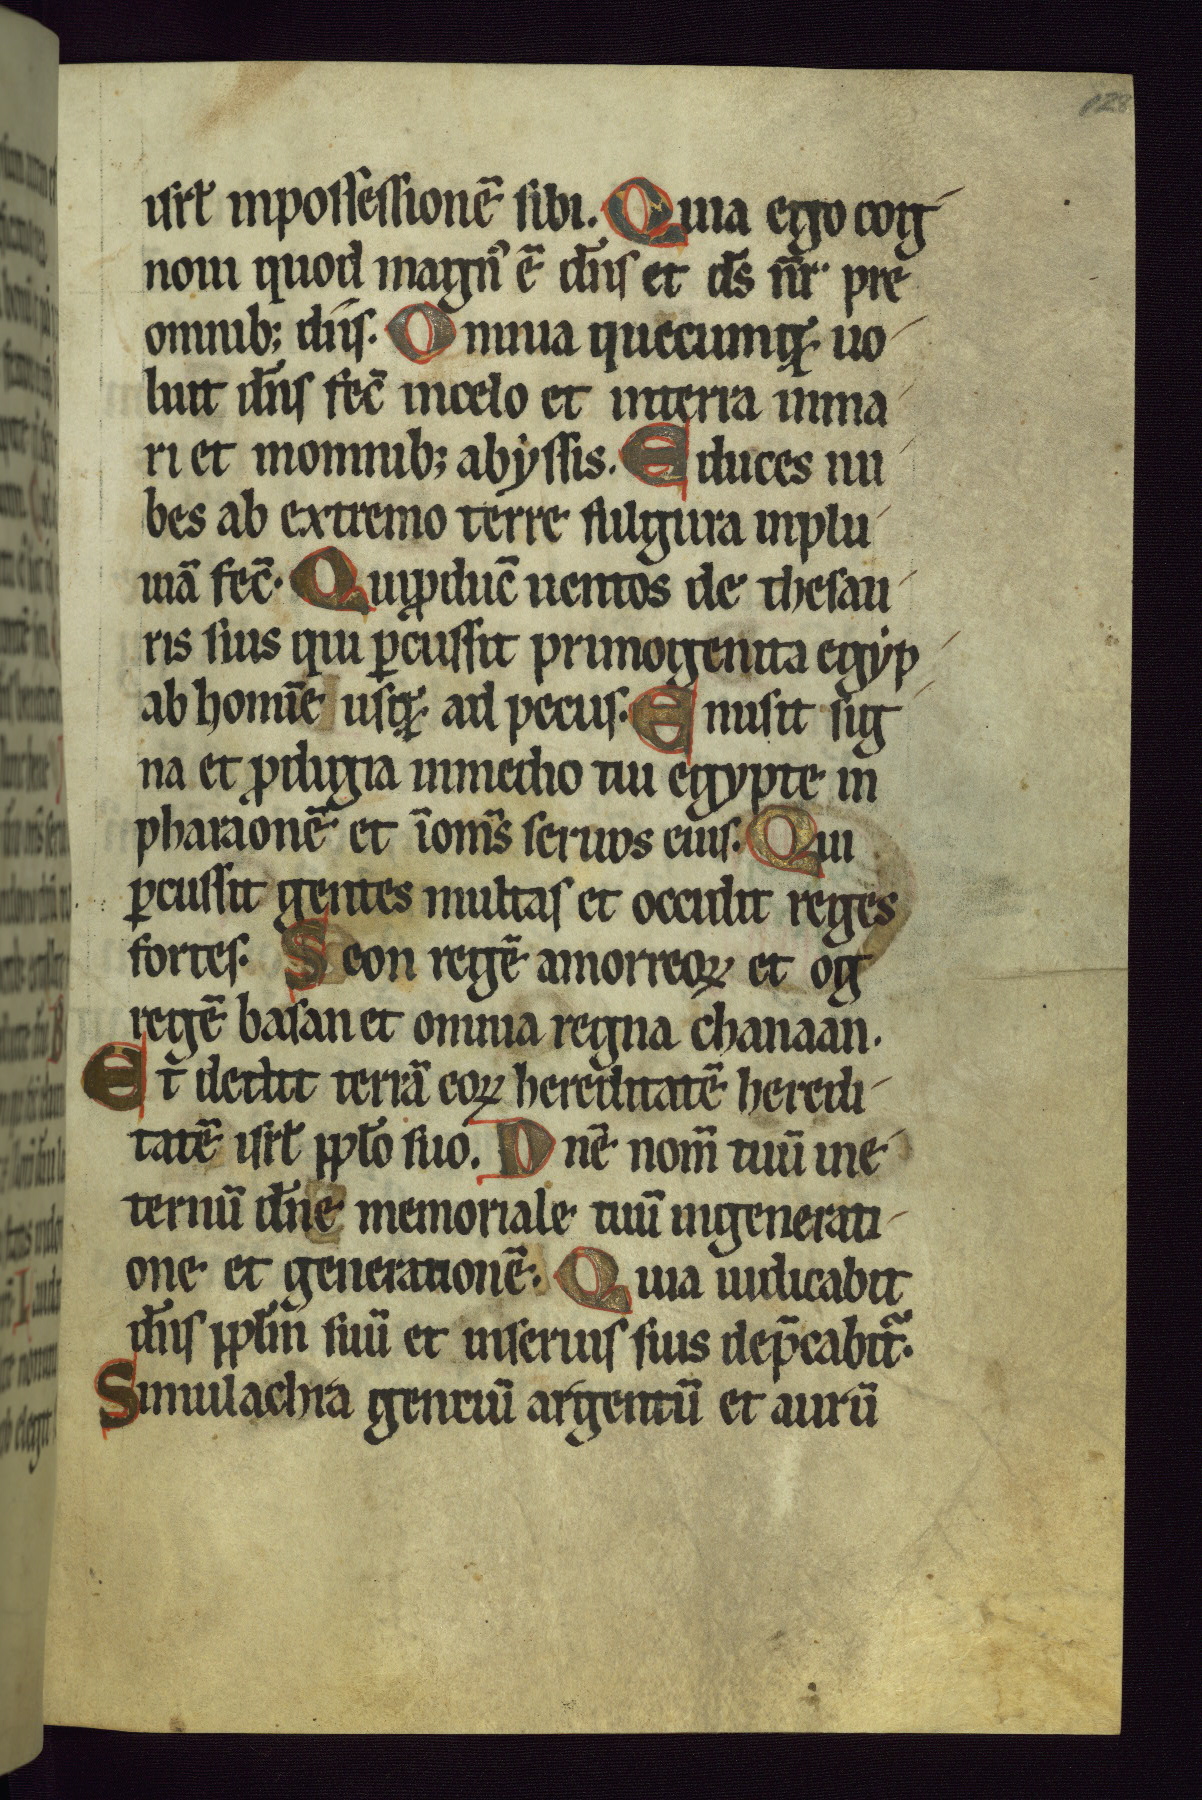 128
isrł inpossessionē sibi. Quia ego cog
noui quod magnꝰ ē dn̄s et ds̄ nr̄ pre
omnib; diis. Omnia quecumqꝫ uo
luit dn̄s fec̄ incelo et interra inma
ri et inomnib; abyssis. Educes nu
bes ab extremo terre fulgura inplu
uiā fec̄. Quiꝓduc̄ uentos de thesau
ris suis qui ꝑcussit primogenita egyp
ab homīe usqꝫ ad pecus. Emisit sig
na et ꝓdigia inmedio tui egypte in
pharaonē et īom̄s seruos eius. Qui
ꝑcussit gentes multas et occidit reges
fortes. Seon regē amorreoꝝ et og
regē basan et omnia regna chanaan.
Et dedit terrā eoꝝ hereditatē heredi
tatē isrł ppło suo. Dnē nom̄ tuū ine
ternū dn̄e memoriale tuū ingenerati
one et generationē. Quia iudicabit
dn̄s ppłm suū et inseruis suis dep̄cabit᷑.
Simulachra genciū argentū et aurū